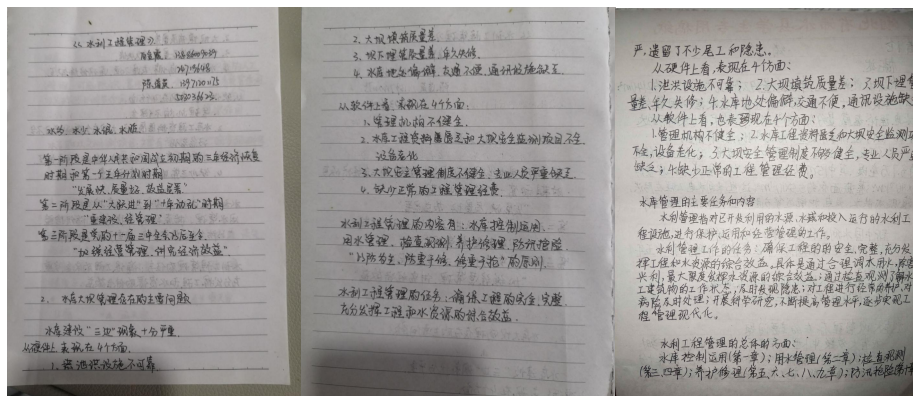 《水利工程管理》
水多、水少、水浑、水脏
第一阶段是中华人民共和国成立初期的三年经济恢复
时期和第一个五年计划时期
"发展快、质量好、效益显著"
第二阶段是从"大跃进"到"十年动乱"的时期
"重建设、轻管理"
第三阶段是党的十一届三中全会以后至今
"加强经营管理、讲究经济效益"
2、水库大坝管理存在的主要问题
水库建设"三边"现象十分严重
从硬件上表现在4个方面
1、泄洪设施不可靠
2、大坝填筑质量差
3、坝下埋管质量差、年久失修
4、水库地处偏僻、交通不便、通讯设施缺乏
从软件上看,表现在4个方面:
1、管理机构不健全
2、水库工程资料匮乏和大坝安全监测项目不全
设备老化
3、大坝安全管理制度不健全,专业人员严重缺乏
4、缺少正常的工程管理经费
水利工程管理的内容有:水库控制运用、
用水管理、检查观测、养护修理、防汛抢险
"以防为主,防重于修,修重于抢"的原则
水利工程管理的任务:确保工程的安全、完整
充分发挥工程和水资源的综合效益
严,遗留了不少尾工和隐患。
从硬件上看,表现在4个方面:
1.泄洪设施不可靠;2.大坝填筑质量差;3.坝下埋管
量差,年久失修;4.水库地处偏僻,交通不便,通讯设施缺
从软件上看,也表现在4个方面:
1.管理机构不健全;2.水库工程资料匮乏和大坝安全监测
不全,设备老化;3.大坝安全管理制度不够健全,专业人员严
缺乏;4.缺少正常的工程管理经费。
水库管理的主要任务和内容
水利管理指对已开发利用的水源、水域和投入运行的水利工
程设施,进行保护、运用和经营管理的工作。
水利管理工作的任务:确保工程的的安全、完整,充分发
挥工程和水资源的综合效益。具体是通过合理调水用水,除害
兴利,最大限度发挥水资源的综合效益;通过检查观测了解水
工建筑物的工作状态,及时发现隐患;对工程进行经常的养护,对
病险及时处理;开展科学研究,不断提高管理水平,逐步实现工
程管理现代化。
水利工程管理的总体的方面:
水库控制运用(第一章);用水管理(第二章);检查观测
(第三、四章);养护修理(第五、六、七、八、九章);防汛抢险(第十